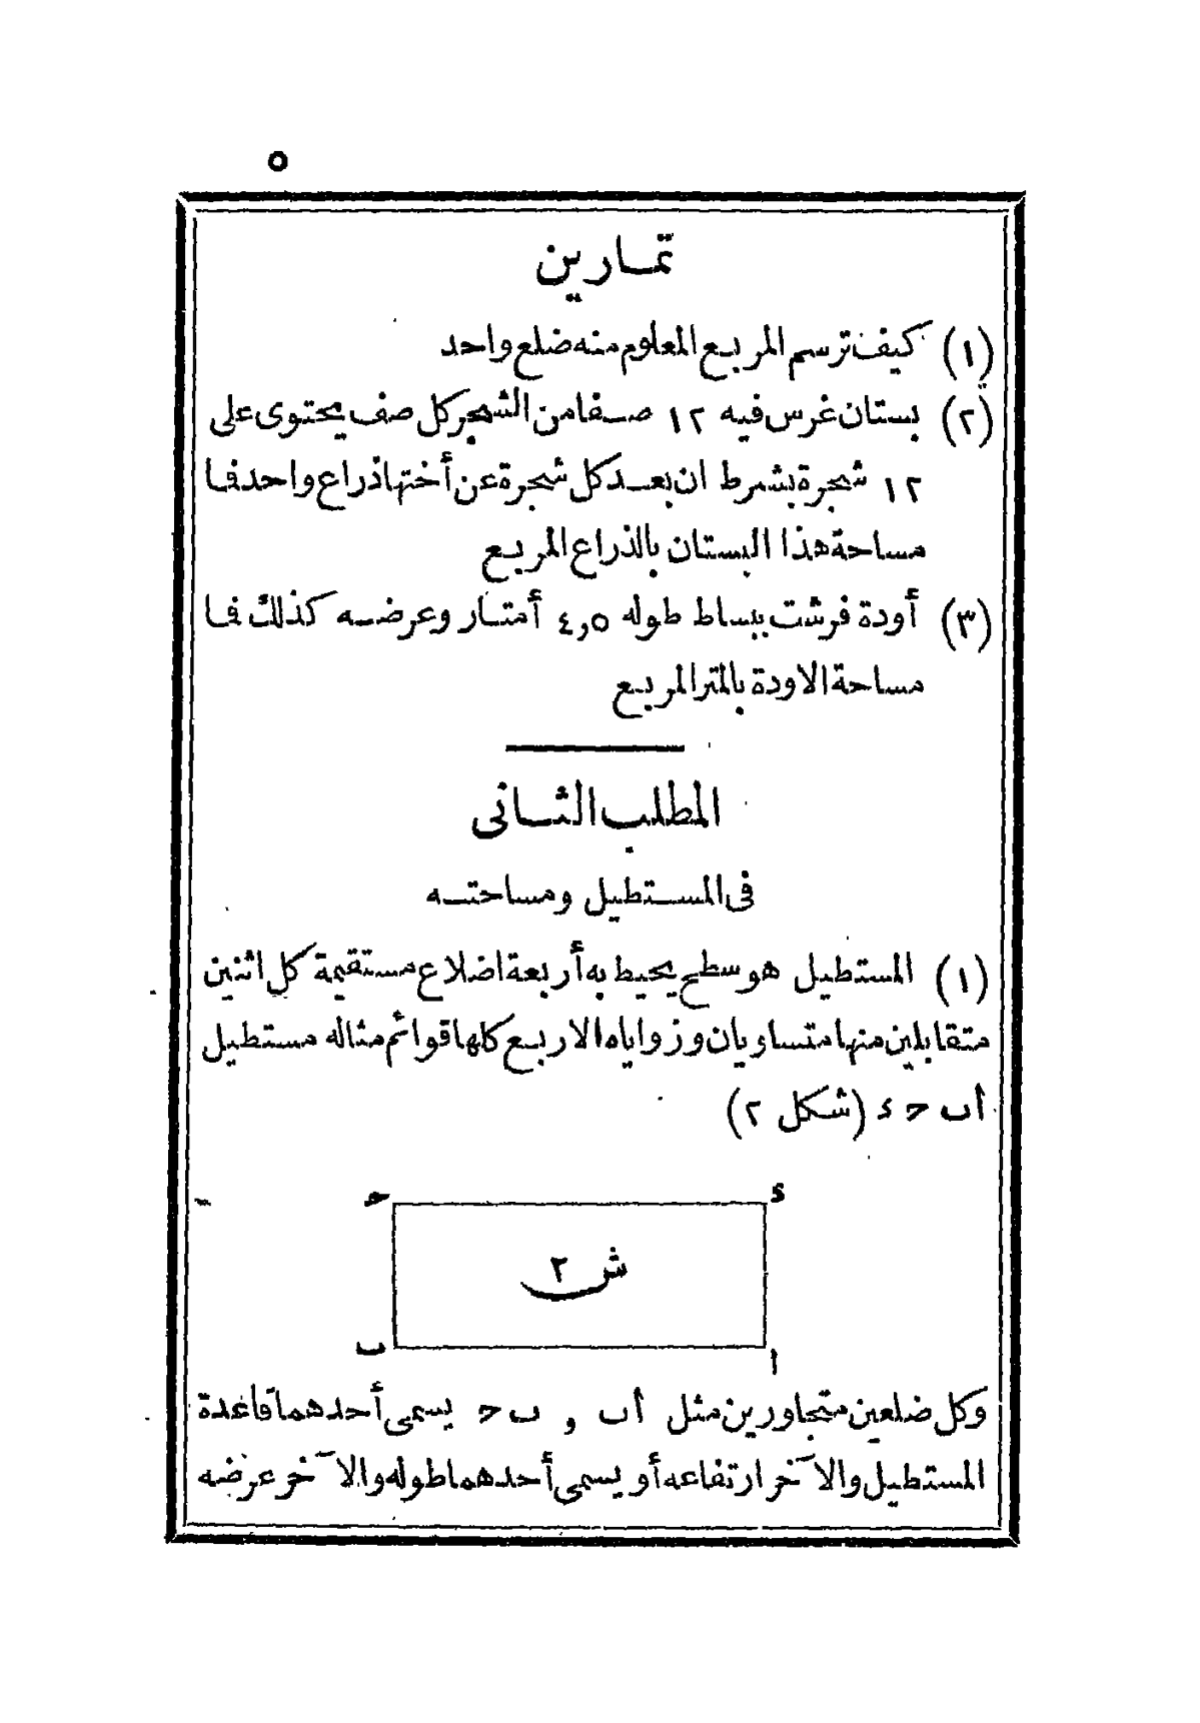 ٥
تمارين
(١) كيف ترسم المربع المعلوم منه ضلع واحد
(٢) بستان غرس فيه ١٢ صفا من الشجر كل صف يحتوى على
١٢ شجرة بشرط ان بعد كل شجرة عن أختها ذراع واحد فما
مساحة هذا البستان بالذراع المربع
(٣) أودة فرشت ببساط طوله ٤,٥ أمتار وعرضه كذلك فما
مساحة الاودة بالمتر المربع
المطلب الثانى
فى المستطيل ومساحته
(١) المستطيل هو سطح يحيط به أربعة اضلاع مستقيمة كل اثنين
متقابلين منها متساويان وزواياه الاربع كلها قوائم مثاله مستطيل
أ ب ح ء (شكل ٢)
ح ء
ش ٢
ب ا
وكل ضلعين متجاورين مثل أ ب و ب ح يسمى أحدهما قاعدة
المستطيل والآخر ارتفاعه أو يسمى أحدهما طوله والآخر عرضه